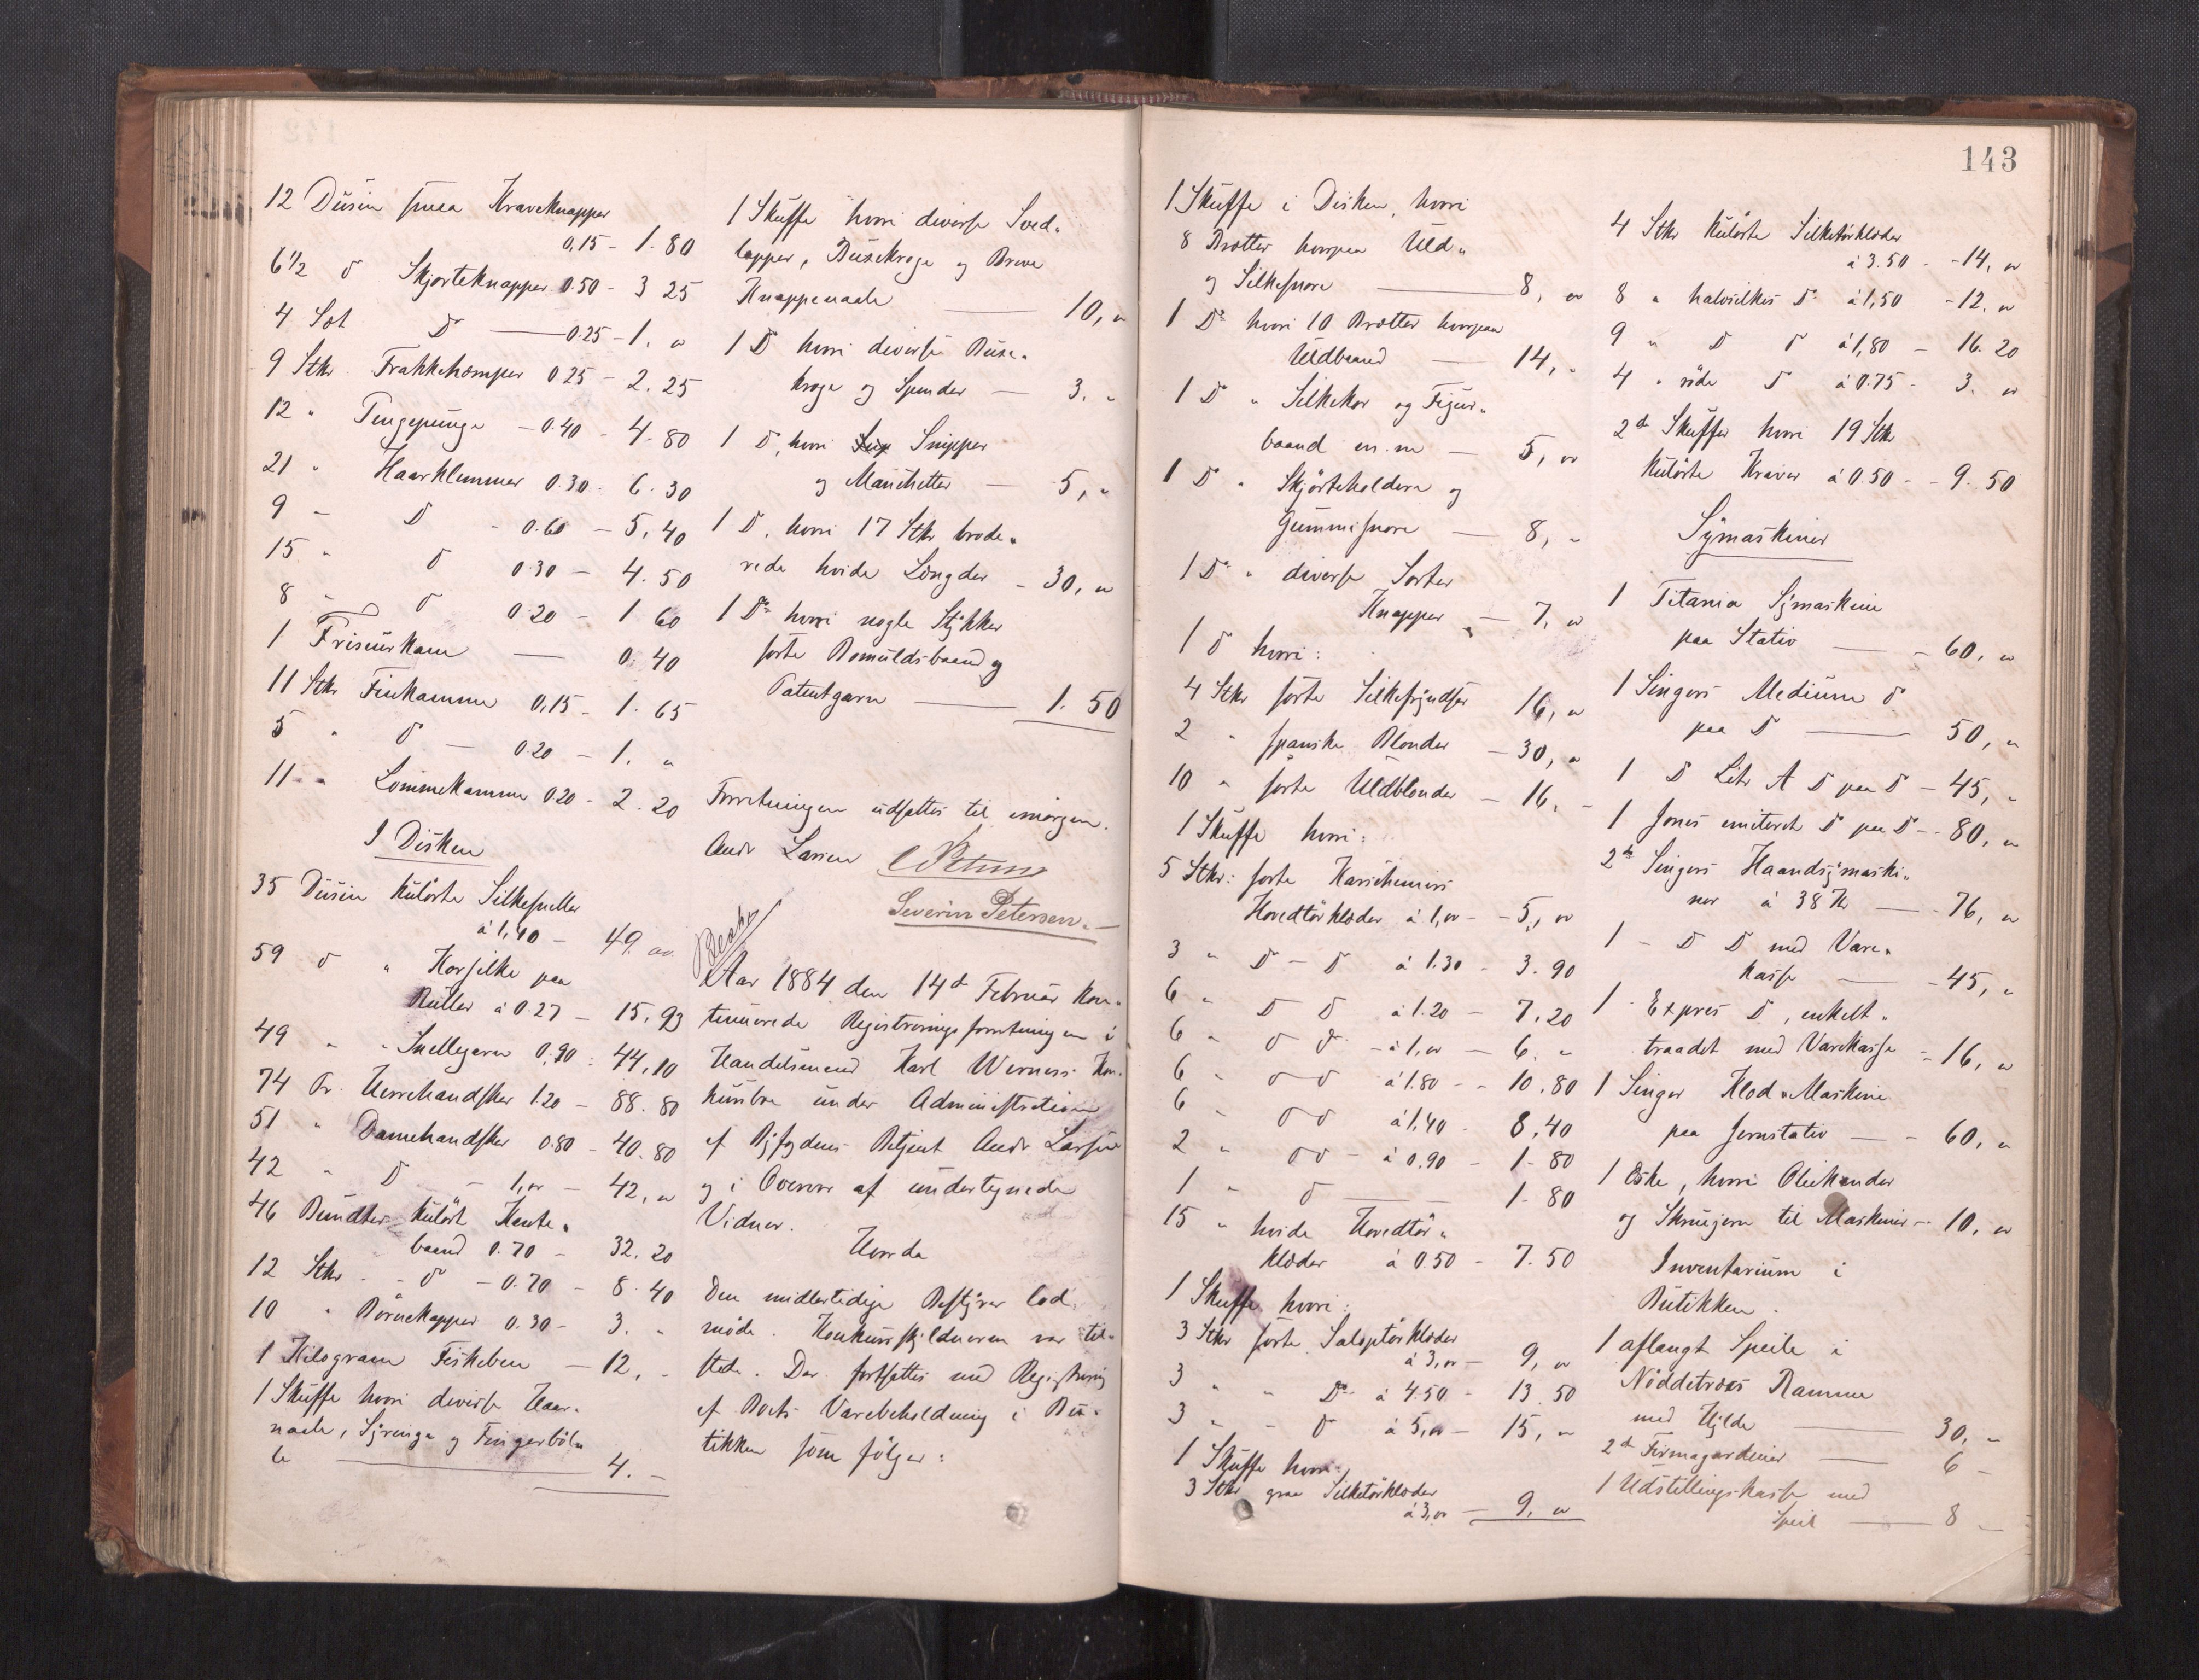 12 Dusin smaa Kraveknapper
0,15 - 1. 80
6 1/2 do Skjorteknapper 0.50 - 3 25
4 Sæt Do — 0.25 - 1. "
9 Stkr. Frakkehæmper 0 25 - 2. 25
12 " Pengepunge - 0.40 - 4. 80
21 " Haarklemmer 0.30 - 6. 30
9 - Do - 0.60 - 5, 40
15 " do 0.30 - 4. 50
8 - do 0.20 - 1 60
1 Friseurkam — 0. 40
11 Stkr Finkamme 0,15 - 1. 65
5 " do - 0.20 - 1. "
11 - " Lommekamme 0.20 - 2. 20
I Disken
35 Dusin kulørte Silkesneller
á 1,40 - 49. oo
59 do " Horsilke paa
Ruller á 0.27 - 15, 93
49 " " Snellegarn 0,90 - 44,10
74 Pr. Herrehandsker 1.20 - 88. 80
51 " Damehandsker 0.80 - 40. 80
42 " Do - 1,oo - 42, oo
46 Bundter kulørt Kante-
baand 0.70 - 32. 20
12 Stkr. - do - 0.70 - 8. 40
10 " Børnekapper 0.30 - 3. "
1 Kilogram Fiskeben - 12, -
1 Skuffe hvori diverse Haar-
naale, Syringe og Fingerbøl-
le — 4. -
1 Skuffe hvori diverse Sved-
lapper, Buxekroge og Breve
Knappenaale — 10, "
1 Do hvori diverse Buxe-
kroge og Spender — 3. "
1 Do, hvori Snipper
og Manchetter — 5, "
1 Do, hvori 17 Stkr brode-
rede hvide Længder - 30, oo
1 Do hvori nogle Stykker
sorte Bomuldsbaand og
Patentgarn — 1. 50
Forretningen udsattes til imorgen.
Andr Larsen C Petersen
Severin Petersen. -
Aar 1884 den 14de Februar kon-
tinuerede Registreringsforretningen i
Handelsmand Karl Werners Kon-
kursbo under Administration
af Byfogdens Betjent Andr Larsen
og i Overvær af undertegnede
Vidner.
Hvorda
Den midlertidige Bestyrer lod
møde. Konkursskyldneren var til-
stede. Der fortsattes med Registrering
af Boets Varebeholdning i Bu-
tikken som følger:
143
1 Skuffe i Disken, hvori
8 Brætter hvorpaa Uld-
og Silkesnore — 8, oo
1 Do hvori 10 Brætter hvorpaa
Uldbaand — 14, "
1 Do " Silkekor og Figur-
baand m. m — 5, oo
1 Do " Skjørteholdere og
Gummisnore — 8, "
1 Do " diverse Sorter
Knapper — 7, oo
1 do hvori:
4 Stkr sorte Silkefryndser 16, oo
2 " spanske Blonder - 30, "
10 " sorte Uldblonder - 16, -
1 Skuffe hvori:
5 Stkr: sorte Kaschemirs
Hovedtørklæder á 1,oo - 5, oo
3 " Do - Do á 1.30 - 3. 90
6 " Do Do á 1.20 - 7. 20
6 " do do - á 1,oo - 6. "
6 " do do á 1.80 - 10. 80
6 " do do á 1,40 - 8. 40
2 " do do - á 0.90 - 1. 80
1 " do — 1. 80
15 " hvide Hovedtør-
klæder á 0.50 - 7. 50
1 Skuffe hvori:
3 Stkr sorte Saloptørklæder
á 3,oo - 9, oo
3 " " Do á 4.50 - 13. 50
3 " - do á 5,oo - 15, "
1 Skuffe hvori
3 Stkr graa Silketørklæder
á 3,oo - 9, oo
4 Stkr kulørte Silketørklæder
á 3.50 - 14, oo
8 " halvsilkes Do á 1,50 - 12. oo
9 " Do do á 1,80 - 16. 20
4 " røde do á 0.75 - 3. oo
2de Skuffer hvori 19 Stkr
kulørte Kraver á 0.50 - 9. 50
Symaskiner
1 Titania Symaskine
paa Stativ — 60, oo
1 Singers Medium do
paa Do — 50, "
1 Do Litr A Do paa Do - 45, "
1 Jones imiteret Do paa Do - 80, "
2de Singers Haandsymaski-
ner á 38 Kr — 76, oo
1 - Do Do med Vare-
kasse — 45, "
1 Expres Do, enkelt-
traadet med Varekasse - 16, oo
1 Singer Klod-Maskine
paa Jernstativ — 60, "
1 Eske, hvori Oliekander
og Skruejern til Maskiner - 10, oo
Inventarium i
Butikken.
1 aflangt Speile i
Nøddetræes Ramme
med Hylde — 30, "
2de Firmagardiner — 6 -
1 Udstillingskasse med
Speil — 8 -